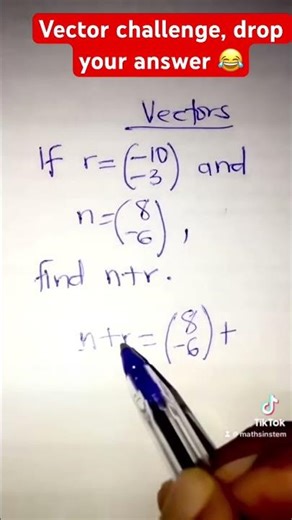 Vector challenge, drop
your answer 😂
Vectors
If r = (-10 -3) and
n = (8 -6),
find n+r.
n+r = (8 -6) +
TikTok
@mathsinstem